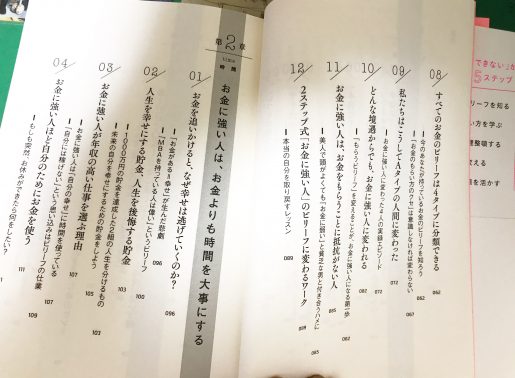 08
すべてのお金のビリーフは4タイプに分類できる
今のあなたが持っているお金のビリーフを知ろう
「お金のもらい方のクセ」は意識しなければ変わらない
062
062
09
私たちはこうしてAタイプの人間に変わった
お金に強い人に変わった4人の実録エピソード
067
067
10
どんな境遇からでも、お金に強い人に変われる
「もらうビリーフ」を変えることが、お金に強い人になる第一歩
11
お金に強い人は、お金をもらうことに抵抗がない人
美人で頭がよくても「お金に弱い」と貧乏な男と付き合うハメに
12
2ステップ式「お金に強い人」のビリーフに変わるワーク
本当の自分を取り戻すレッスン
089
第2章
時間
お金に強い人は、お金よりも時間を大事にする
01
お金を追いかけると、なぜ幸せは逃げていくのか?
「お金がある=幸せ」が生んだ悲劇
「MBAを持っている人は偉い」というビリーフ
096
096
02
人生を幸せにする貯金、人生を後悔する貯金
1000万円の貯金を達成した2組の人生を分けるもの
未来の自分を幸せにするための貯金をしよう
100
03
お金に強い人が年収の高い仕事を選ぶ理由
お金に強い人は「自分の幸せ」に時間を使っている
「自分には稼げない」という思い込みはビリーフの仕業
107
107
109
04
お金に強い人ほど自分のためにお金を使う
もしも突然、お休みができたら何をしたい?
111
できない」が
5ステップ
ビリーフを知る
い方を学ぶ
整頓する
変える
を活かす